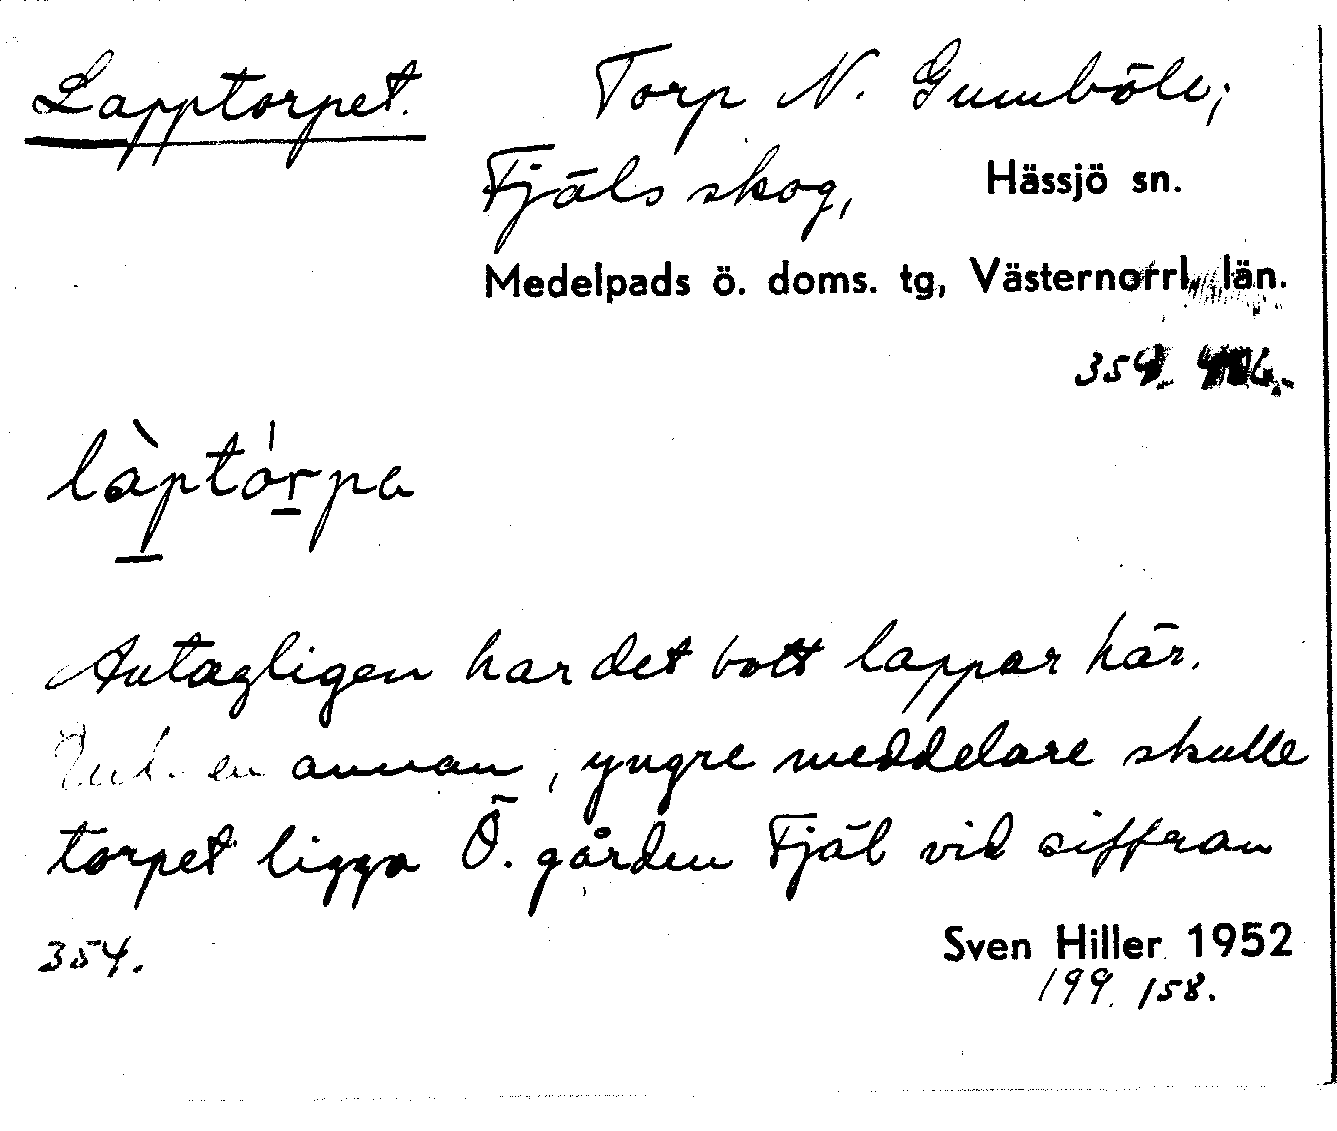 Lapptorpet. Torp N. Gumböle;
Fjäls skog, Hässjö sn.
Medelpads ö. doms. tg, Västernorrl. län.
354.
làptórpa
Antagligen har det bott lappar här.
Enl. en annan, yngre meddelare skulle
torpet ligga Ö. gården Fjäl vid siffran
354.
Sven Hiller 1952
199. 158.